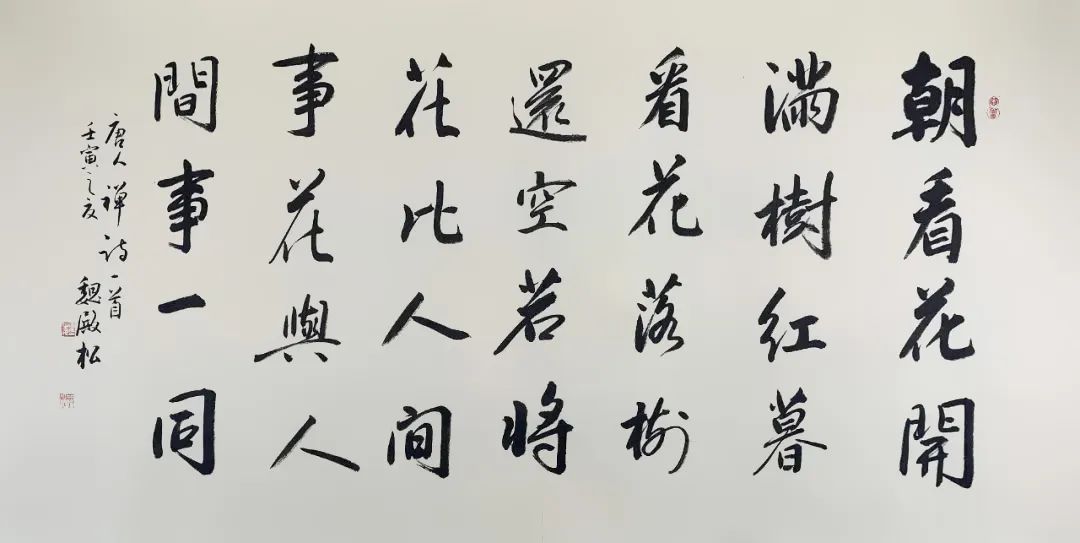 朝看花開
滿樹紅暮
看花落樹
還空若將
花比人間
事花與人
間事一同
唐人禅诗一首
壬寅之夏
魏殿松